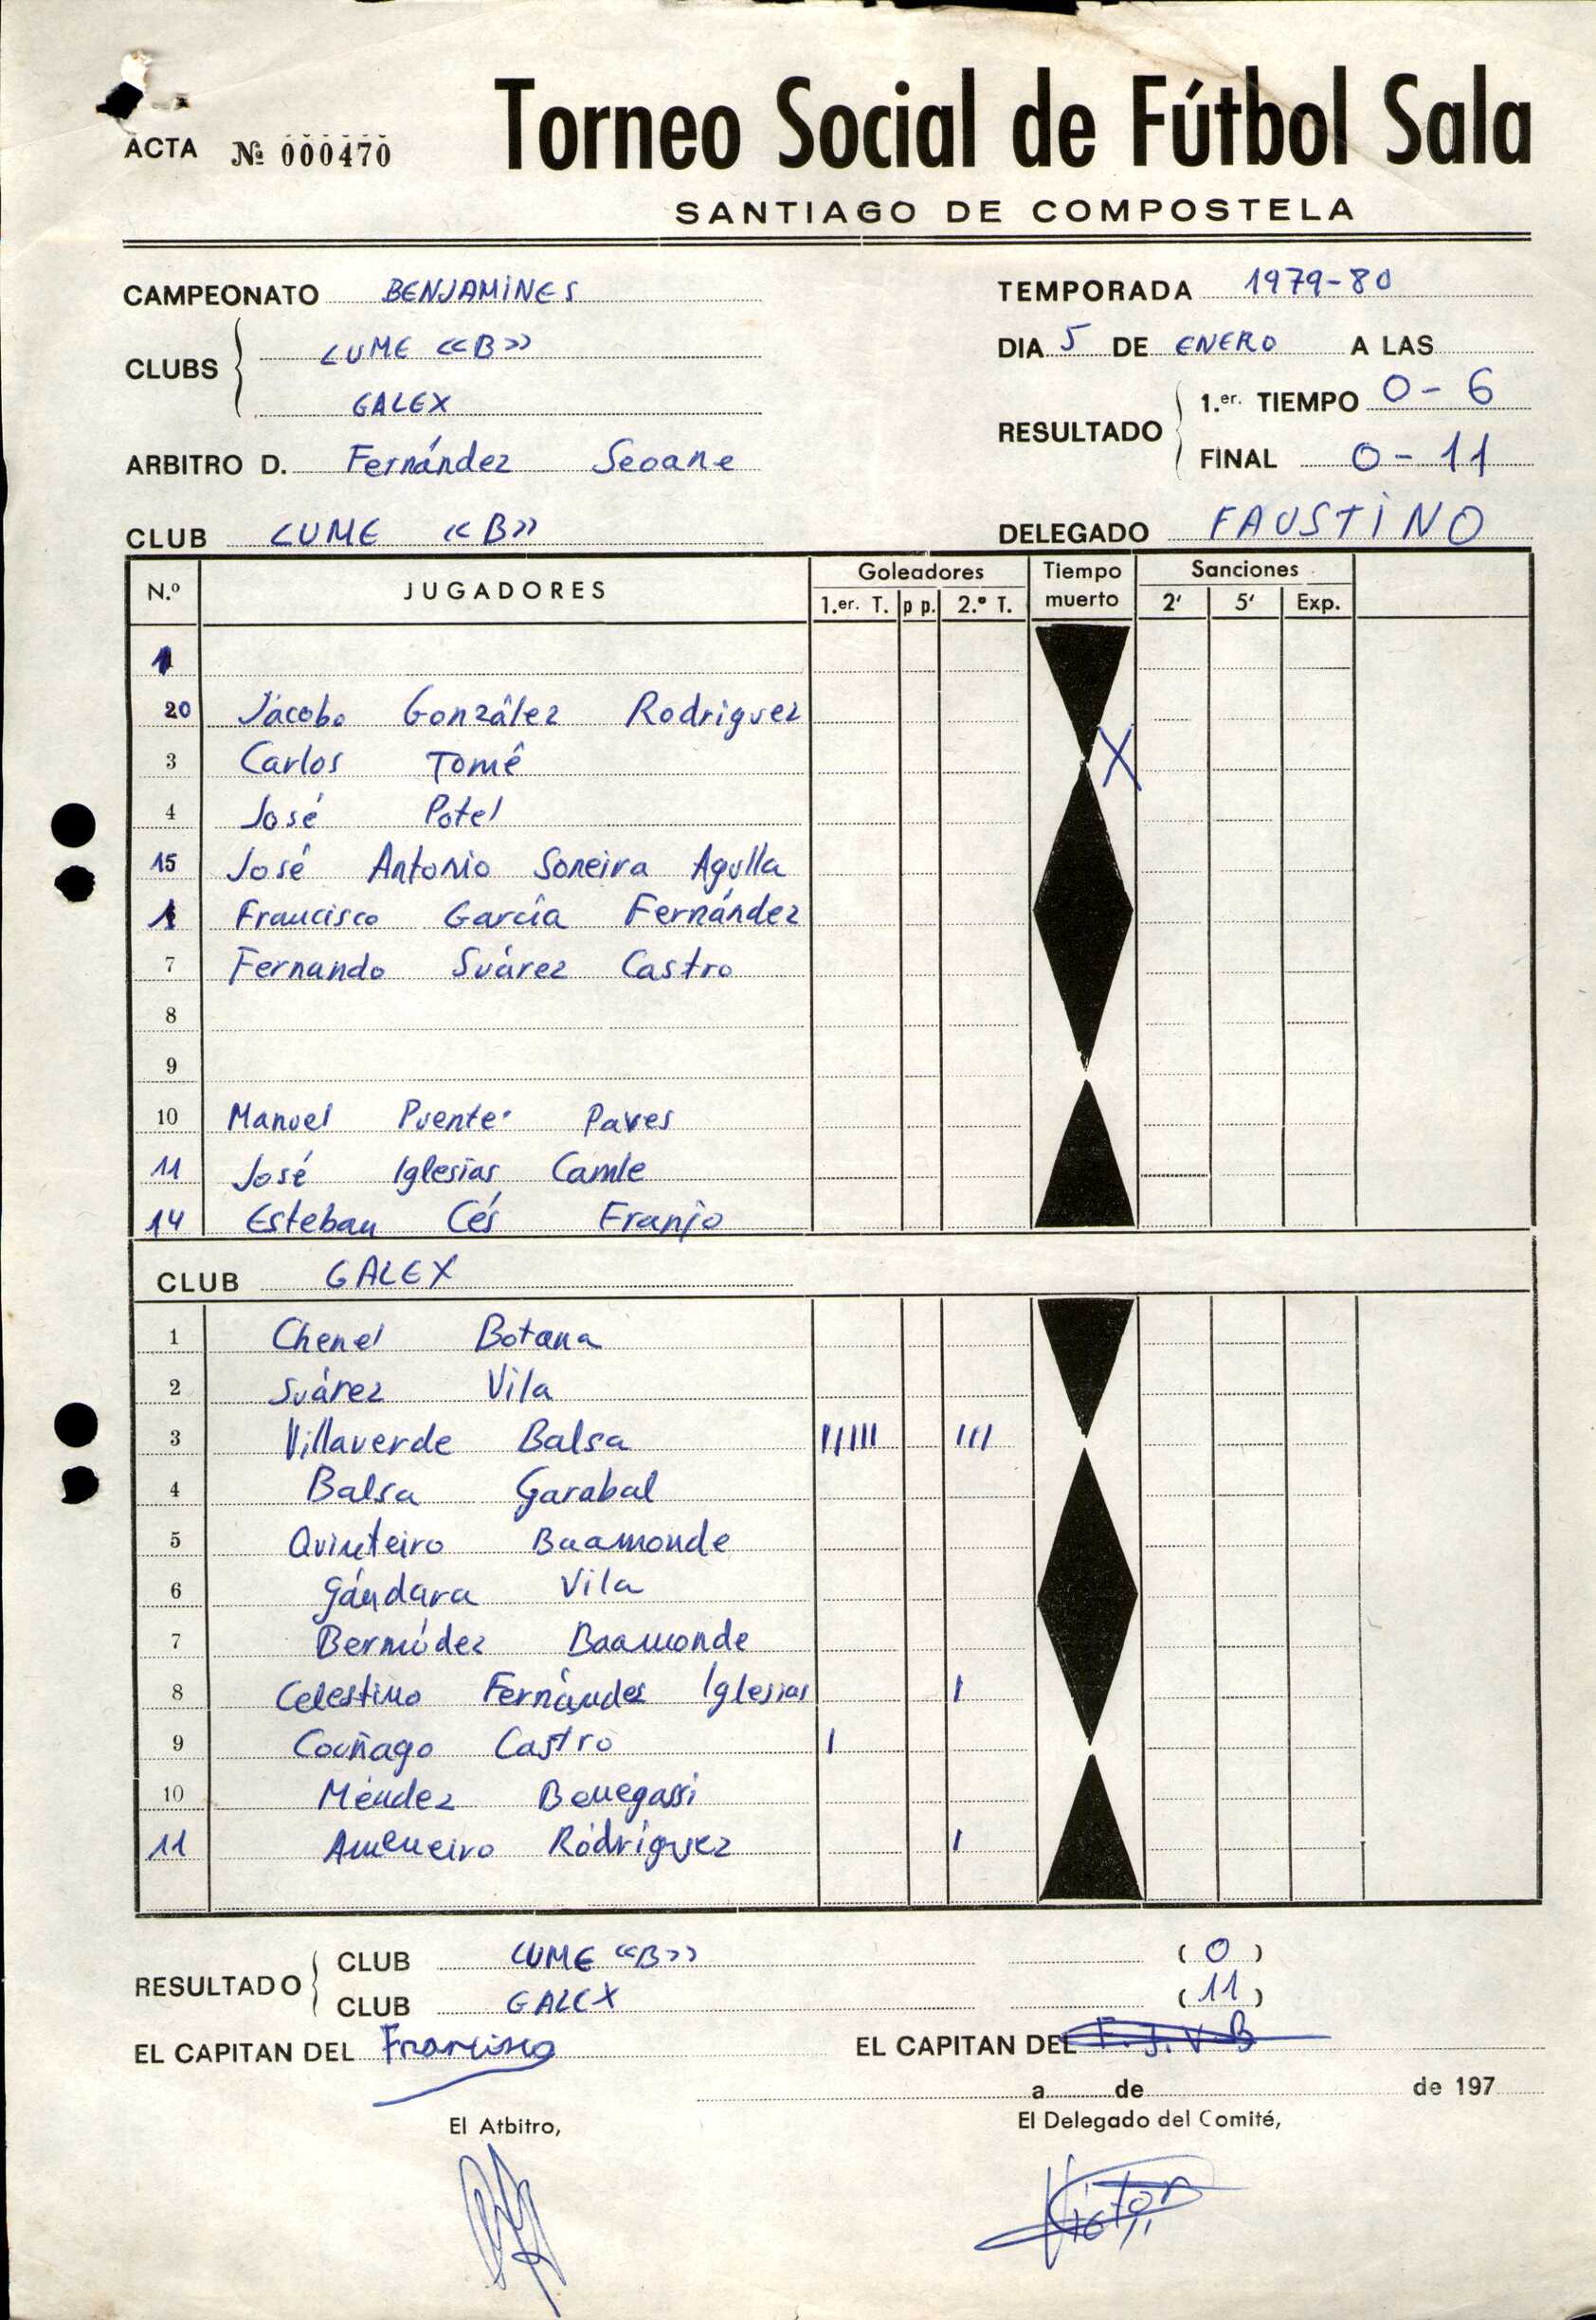 Torneo Social de Fútbol Sala
ACTA Nº 000470
SANTIAGO DE COMPOSTELA
CAMPEONATO BENJAMINES TEMPORADA 1979-80
CLUBS LUME «B» DIA 5 DE ENERO A LAS
GALEX RESULTADO 1.er. TIEMPO 0-6
ARBITRO D. Fernández Seoane FINAL 0-11
CLUB LUME «B» DELEGADO FAUSTINO
N.º JUGADORES Goleadores Tiempo muerto Sanciones
1.er. T. p p. 2.º T. 2' 5' Exp.
1
20 Jacobo González Rodriguez
3 Carlos Tomé X
4 José Potel
15 José Antonio Soneira Agulla
1 Francisco García Fernández
7 Fernando Suárez Castro
8
9
10 Manuel Puente Paves
11 José Iglesias
14 Esteban Cés Franjo
CLUB GALEX
1 Chenel Botana
2 Suárez Vila
3 Villaverde Balsa IIIII III
4 Balsa Garabal
5 Quinteiro Baamonde
6 Gándara Vila
7 Bermúdez Baamonde
8 Celestino Fernández Iglesias I
9 Couñago Castro I
10 Méndez Benegassi
11 Ameneiro Rodríguez I
RESULTADO CLUB LUME «B» (0)
CLUB GALEX (11)
EL CAPITAN DEL Francisco EL CAPITAN DEL F.J.V.B
a de de 197
El Atbitro, El Delegado del Comité,